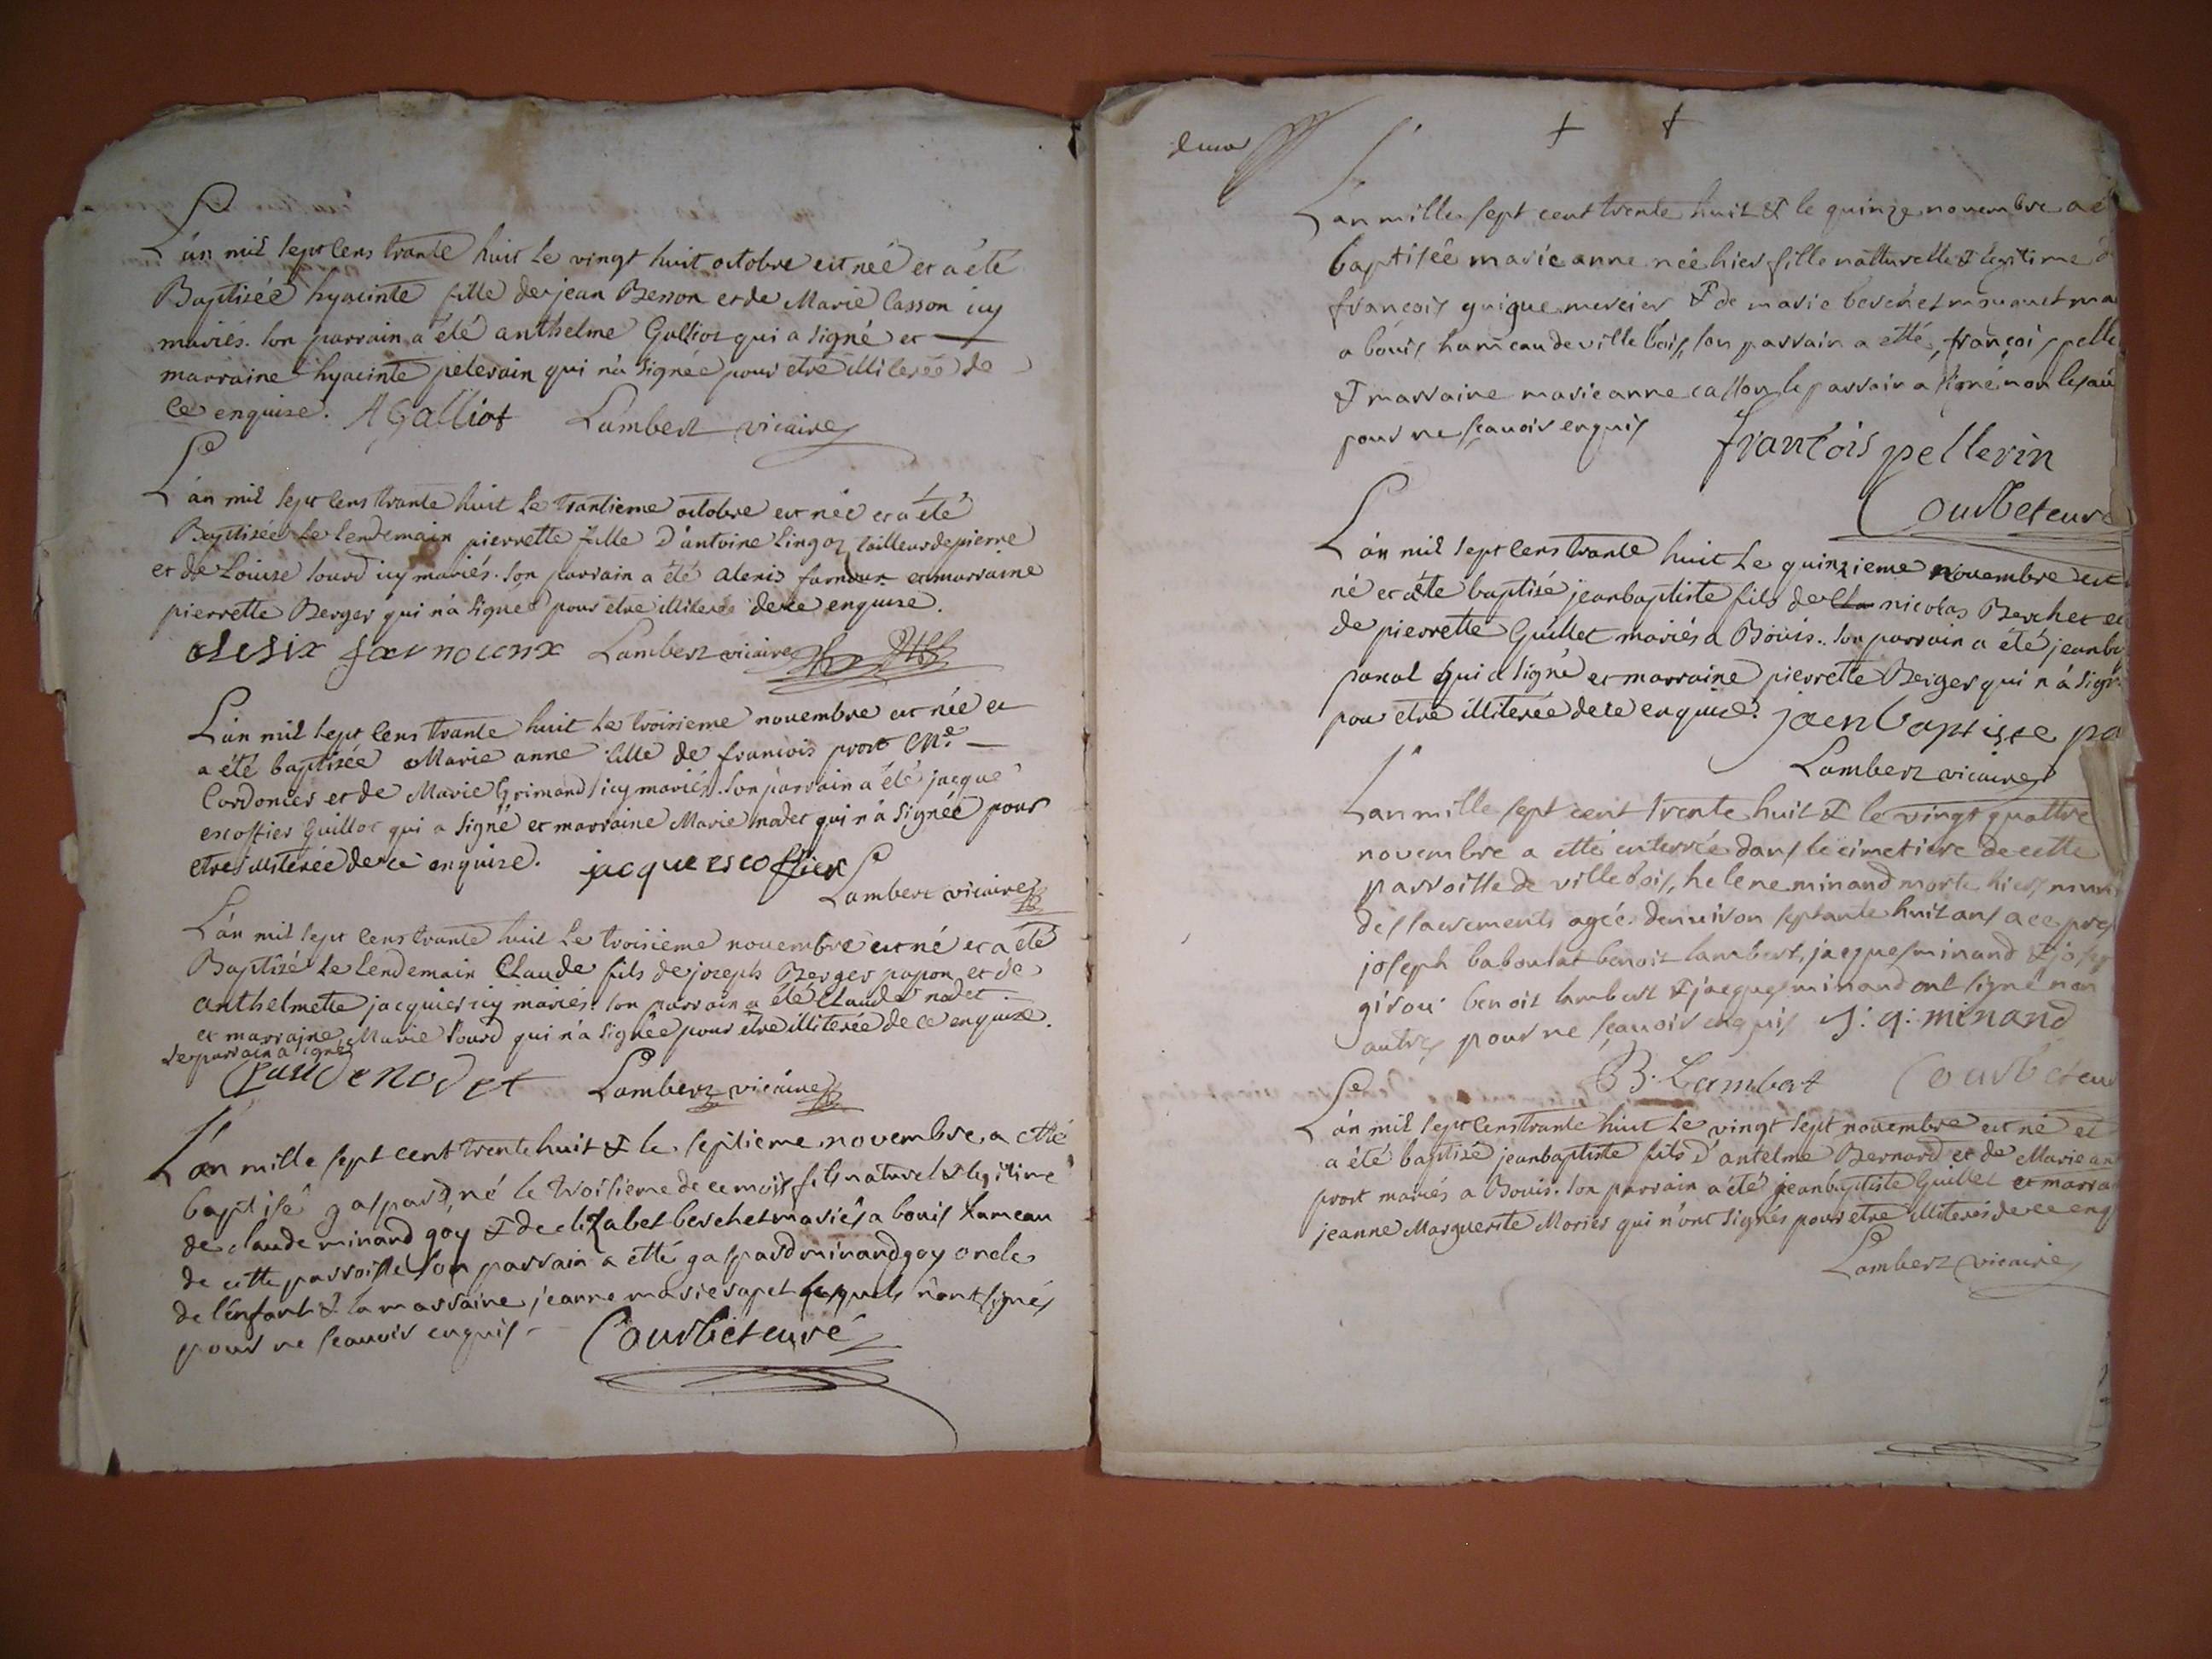 L'án mil sept cens trante huit le vingt huit octobre est née et a été
Baptisée hyacinte fille de jean Besson et de Marie Casson icy
mariés. son parrain a été anthelme Galliot qui a signé et
marraine hyacinte pelerain qui n'a signée pour etre illiterée de
ce enquise. A Galliot Lambert vicaire
L'án mil sept cens trante huit le trantieme octobre est née et a été
Baptisée le lendemain pierrette fille d'antoine Lingot tailleur de pierre
et de Louise sourd icy mariés. son parrain a été alexis farnoux et marraine
pierrette Berger qui n'a signé pour etre illiterée de ce enquise.
alesix farnoux Lambert vicaire
L'án mil sept cens trante huit le troisieme novembre est née et
a été baptisée Marie anne fille de francois prost Me.
Cordonier et de Marie Grimand icy mariés. son parrain a été jacque
escoffier Guillot qui a signé et marraine Marie nadet qui n'a signée pour
etre illiterée de ce enquise. jacque escoffier
Lambert vicaire
L'án mil sept cens trante huit le troisieme novembre est né et a été
Baptisé le lendemain Claude fils de joseph Berger papon et de
anthelmette jacquier icy mariés. son parrain a été Claude nadet
et marraine Marie sourd qui n'a signée pour etre illiterée de ce enquise.
le parrain a signé
Claude nodet Lambert vicaire
L'án mille sept cent trente huit & le septieme novembre a etté
baptisé gaspard, né le troisieme de ce mois fils naturel & legitime
de claude minand goy & de elizabet berchet mariés a bouis hameau
de cette parroisse son parrain a etté gaspard minand goy oncle
de l'enfant & la marraine jeanne marie sapet lesquels n'ont signés
pour ne scavoir enquis Courbet curé
deux
L'an mille sept cent trente huit & le quinze novembre a é
baptisée marie anne née hier fille natturelle & legitime d
françois guigue mercier & de marie berchet mouguet ma
a bouis hameau de ville bois, son parrain a etté, françois pelle
& marraine marie anne casson le parrain a signé, non la
pour ne scavoir enquis francois pellerin
Courbet curé
L'án mil sept cens trante huit le quinzieme novembre est
né et a été baptisé jean baptiste fils de nicolas Berchet et
de pierrette Guillet mariés a Boüis. son parrain a été jean ba
qui a signé et marraine pierrette Berger qui n'a sign
pour etre illiterée de ce enquise. jaen baptiste pa
Lambert vicaire
L'an mille sept cent trente huit & le vingt quattre
novembre a etté enterrée dans le cimetiere de cette
parroisse de ville bois, helene minand morte hier muni
des sacrements agée denviron septante huit ans a ce pres
joseph baboulat benoit lambert, jacques minand & jose
girou. benoit lambert & jacques minand ont signé non
autres pour ne scavoir enquis J: q: minand
B. Lambert Courbet cur
L'án mil sept cens trante huit le vingt sept novembre est né et
a été baptisé jean baptiste fils d'antelme Bernard et de Marie an
prost mariés a Bouis. son parrain a été jean baptiste Guillet et marra
jeanne Marguerite Morier qui n'ont signés pour etre illiterés de ce enq
Lambert vicaire